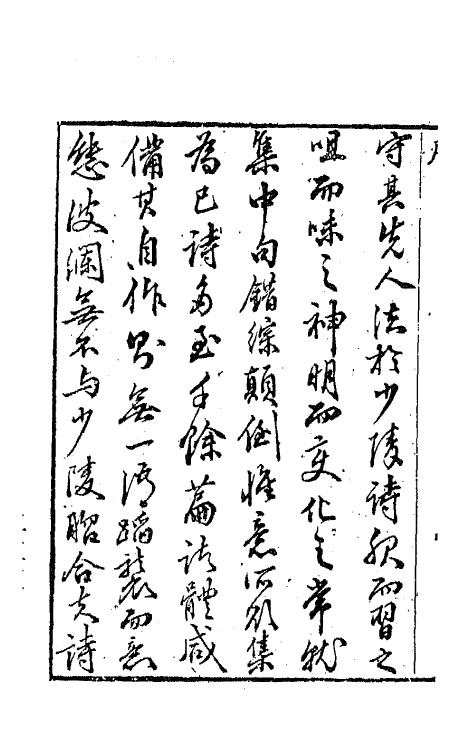 守其先人法於少陵詩服而習之
咀而味之神明而变化之常就
集中句錯綜顛倒惟意所欲集
為已詩多至千餘篇諸體咸
備其自作則無一語蹈襲而意
態波瀾無不与少陵脗合夫詩